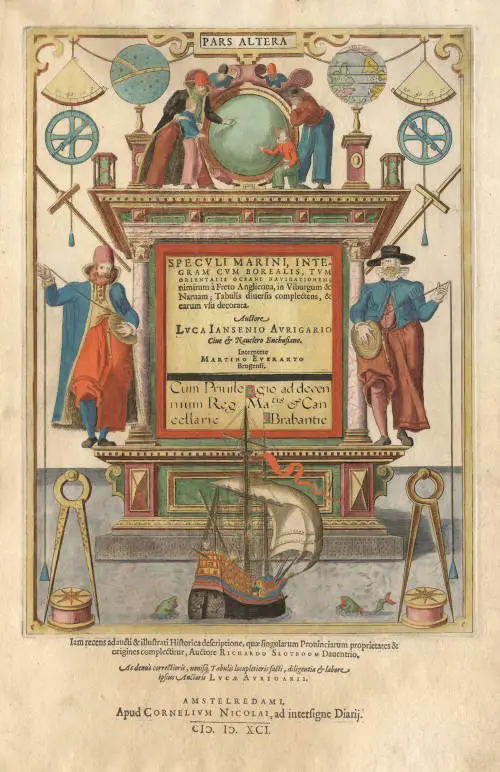 PARS ALTERA
SPECVLI MARINI, INTE-
GRAM CVM BOREALIS, TVM
ORIENTALIS OCEANI NAVIGATIONEM,
nimirum à Freto Anglicona, in Viburgum &
Naruam; Tabulis diuersis complectens, &
earum vsu decorata.
Auctore
LVCA IANSENIO AVRIGARIO
Ciue & Nauclero Enchusiano.
Interprete
MARTINO EVERARTO
Brugensi.
Cum Priuilegio ad decen
nium Reg. Matis & Can
cellarie Brabantie
Iam recens adaucti & illustrati Historica descriptione, quæ singularum Prouinciarum proprietates &
origines complectitur, Auctore RICHARDO SLOTBOOM Dauentrio.
Ac denuò correctioris, nouisq; Tabulis locupletioris facti, diligentia & labore
ipsius Auctoris LVCÆ AVRIGARII.
AMSTELREDAMI,
Apud CORNELIVM NICOLAI, ad intersigne Diarij.
CIƆ. IƆ. XCI.